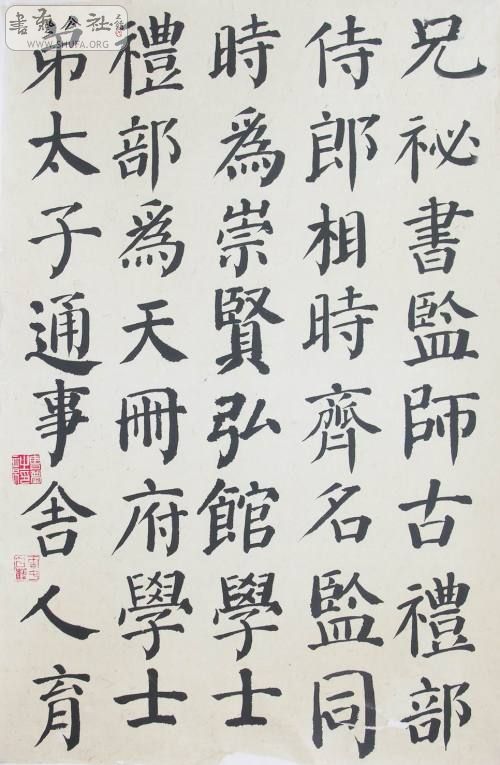 兄祕書監師古禮部
侍郎相時齊名監同
時為崇賢弘館學士
禮部為天冊府學士
弟太子通事舍人育
書藝公社
WWW.SHUFA.ORG